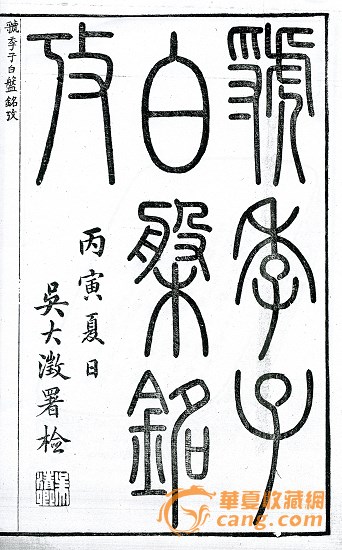 虢季子
白槃銘
攷
丙寅夏日
吳大澂署檢
虢季子白盤銘攷
華夏收藏網
cang.com